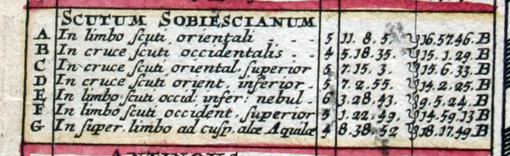 SCUTUM SOBIESCIANUM
A In limbo scuti orientali 5 11. 8. 5. ♑ 16.57.46. B
B In cruce scuti occidentalis 4 5.18.35. ♑ 15.1.29. B
C In cruce scuti oriental. superior 5 7.15.3. ♑ 15.6.33. B
D In cruce scuti orient. inferior 5 7.2.55. ♑ 14.2.25. B
E In limbo scuti occid. infer: nebul 6 3.28.43. ♑ 9.5.24. B
F In limbo scuti occident. superior 5 1.22.49. ♑ 14.59.13 B
G In super. limbo ad cusp. alæ Aquilæ 4 8.38.52 ♑ 18.17.49. B